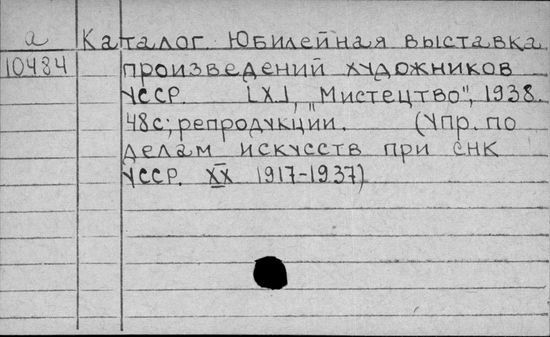 а Каталог. Юбилейная выставка
10484 произведений художников
УССР. [Х], „Мистецтво", 1938.
48с; репродукции. (Упр. по
делам искусств при СНК
УССР. XX 1917-1937)